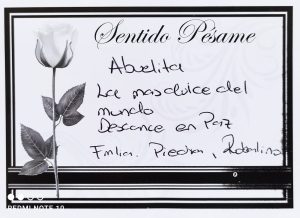 Sentido Pésame
Abuelita
La mas dulce del
mundo
Descance en Paz
Familia. Piedra, Robalino
REDMI NOTE 10